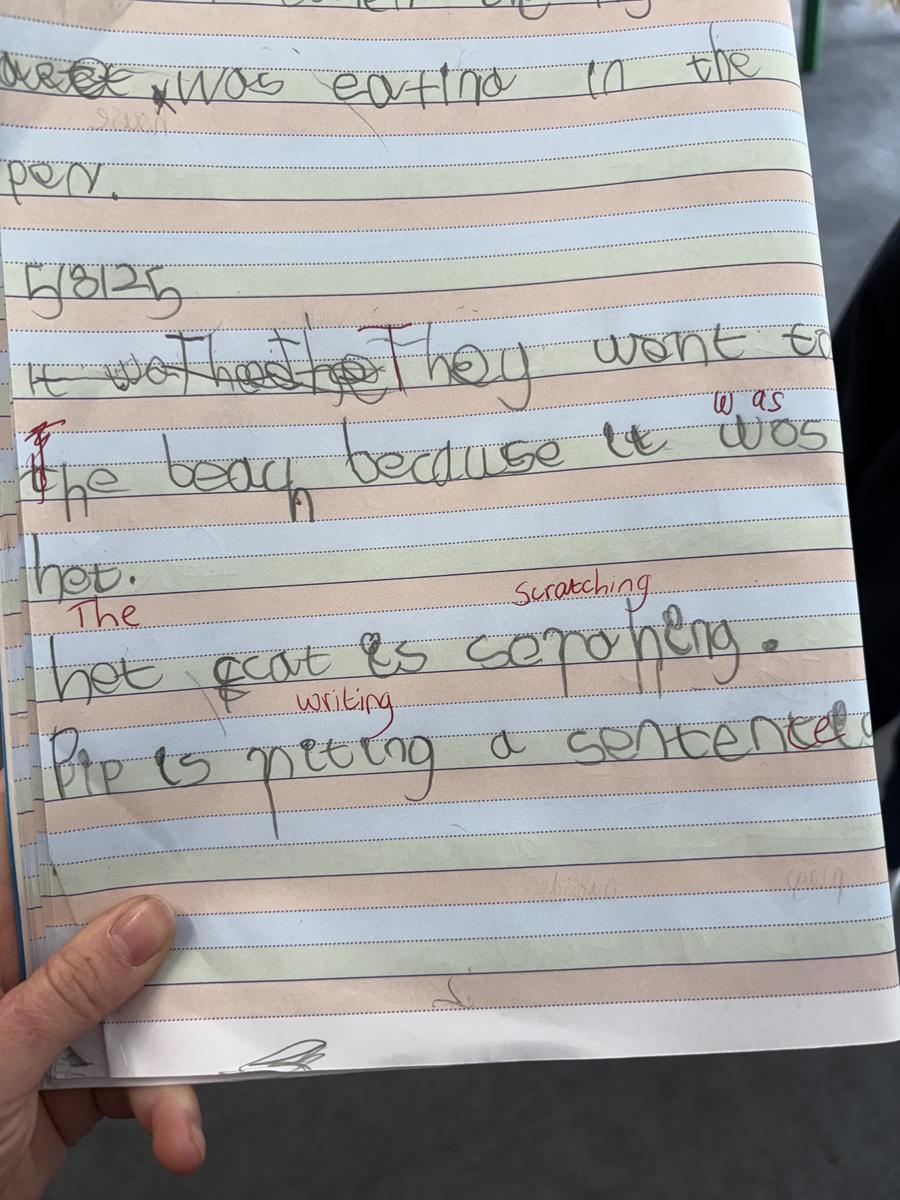 was eating in the
pen.
5/8/25
They went to
was
the beach because it was
hot.
The scratching
het cat is scrahping.
writing
Pip is riting a sentence